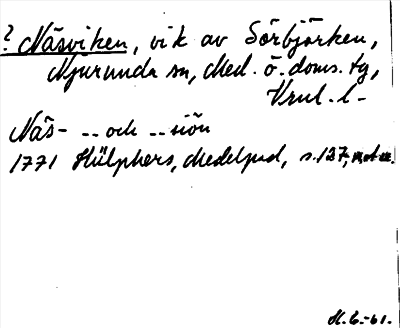 ? Näsviken, vik av Sörbjörken,
Njurunda sn, Med. ö. doms. tg,
Vrnl. l-
Näs- -- och -- siön
1771 Hülphers, Medelpad, s. 127, not
M. E. -61.